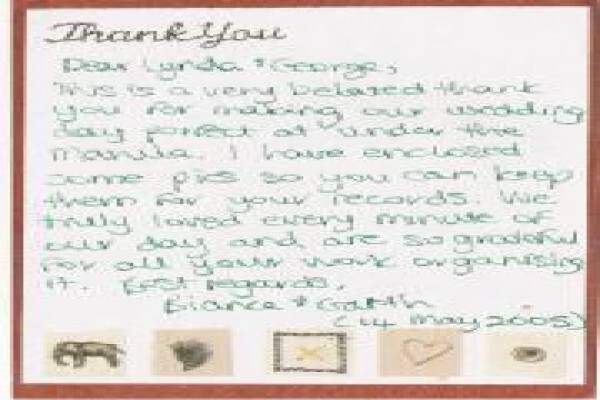 Thank You
Dear Lynda & George,
This is a very belated thank
you for making our wedding
day perfect at 'under the
Manuka. I have enclosed
some pics so you can keep
them for your records. We
truly loved every minute of
our day and are so grateful
for all your work organising
it. Best regards,
&
(14 May 2005)